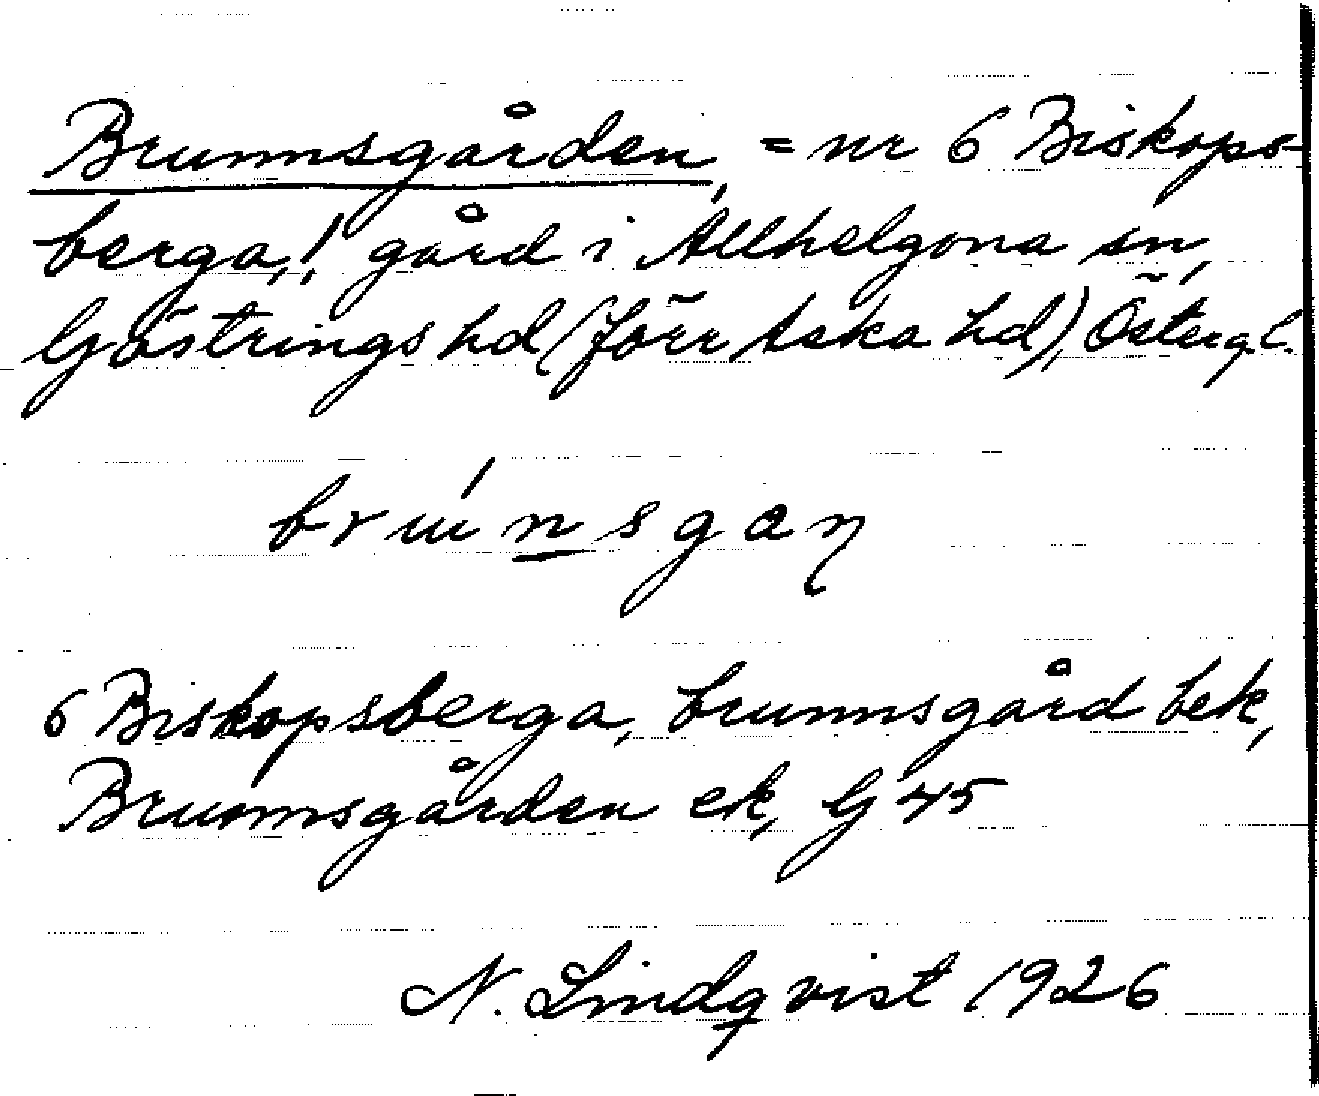 Brunnsgården, = nr 6 Biskops-
berga,! gård i Allhelgona sn,
Göstrings hd (förr Aska hd), Östergl.
brúnsgaŋ
6 Biskopsberga, brunnsgård bek,
Brunnsgården ek, G 45
N. Lindqvist 1926